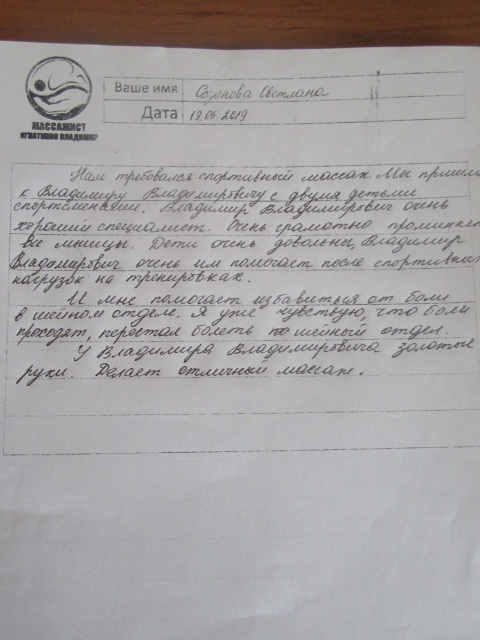 МАССАЖИСТ
ИГНАТИЕНКО ВЛАДИМИР
Ваше имя Созонова Светлана
Дата 19.06.2019
Нам требовался спортивный массаж. Мы пришли
к Владимиру Владимировичу с двумя детьми
спортсменами. Владимир Владимирович очень
хороший специалист. Очень грамотно проминает
все мышцы. Дети очень довольны, Владимир
Владимирович очень им помогает после спортивных
нагрузок на тренировках.
И мне помогает избавиться от боли
в шейном отделе. Я уже чувствую, что боли
проходят, перестал болеть шейный отдел.
У Владимира Владимировича золотые
руки. Делает отличный массаж.